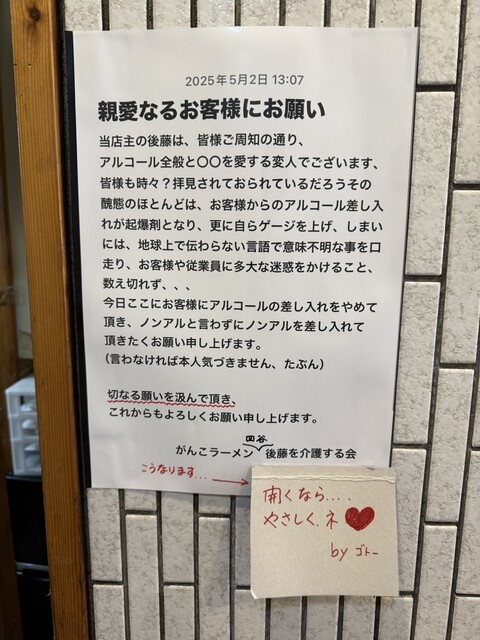 2025年5月2日 13:07
親愛なるお客様にお願い
当店主の後藤は、皆様ご周知の通り、
アルコール全般と〇〇を愛する変人でございます、
皆様も時々?拝見されておられているだろうその
醜態のほとんどは、お客様からのアルコール差し入
れが起爆剤となり、更に自らゲージを上げ、しまい
には、地球上で伝わらない言語で意味不明な事を口
走り、お客様や従業員に多大な迷惑をかけること、
数え切れず、、、
今日ここにお客様にアルコールの差し入れをやめて
頂き、ノンアルと言わずにノンアルを差し入れて
頂きたくお願い申し上げます。
(言わなければ本人気づきません、たぶん)
切なる願いを汲んで頂き、
これからもよろしくお願い申し上げます。
四谷
がんこラーメン 後藤を介護する会
こうなります...
開くなら....
やさしく、ネ
by ゴトー